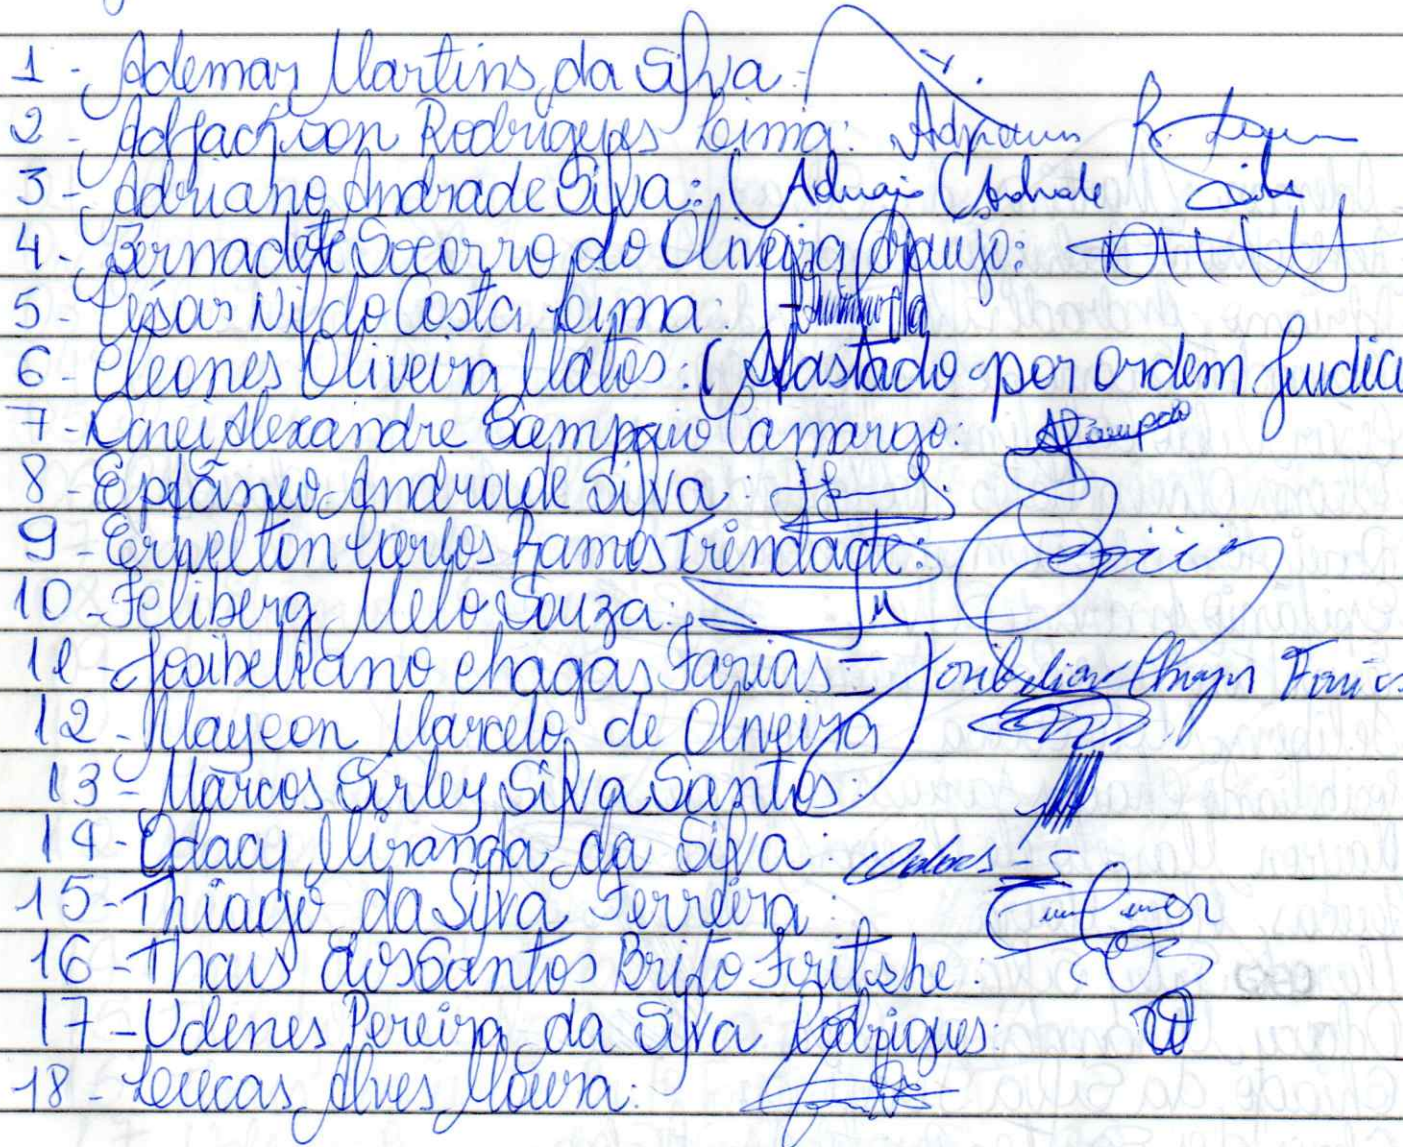 1 - Ademar Martins da Silva:
2 - Adjackson Rodrigues Lima:
3 - Adriano Andrade Silva: Andrade Silva
4 - Bernadete Socorro do Oliveira Araujo:
5 - César Nildo Costa Lima:
6 - Cleones Oliveira Matos: (Afastado por ordem Judici
7 - Danei Alexandre Sampaio Camargo: Sampaio
8 - Epifânio Andrade Silva:
9 - Ernelton Carlos Ramos Trindade:
10 - Feliberg Melo Souza:
11 - Josibeliano Chagas Farias - Josibeliano Chagas Farias
12 - Maycon Marcelo de Oliveira
13 - Marcos Sirley Silva Santos:
14 - Odacy Miranda da Silva:
15 - Thiago da Silva Ferreira:
16 - Thais dos Santos Brito Fritshe:
17 - Udenes Pereira da Silva Rodrigues:
18 - Leucas Alves Moura: